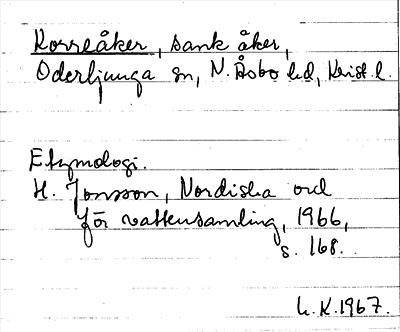 Korreåker, sank åker,
Oderljunga sn, N. Åsbo hd, Krist. l.
Etymologi.
H. Jonsson, Nordiska ord
för vattensamling, 1966,
s. 168.
L. K. 1967.